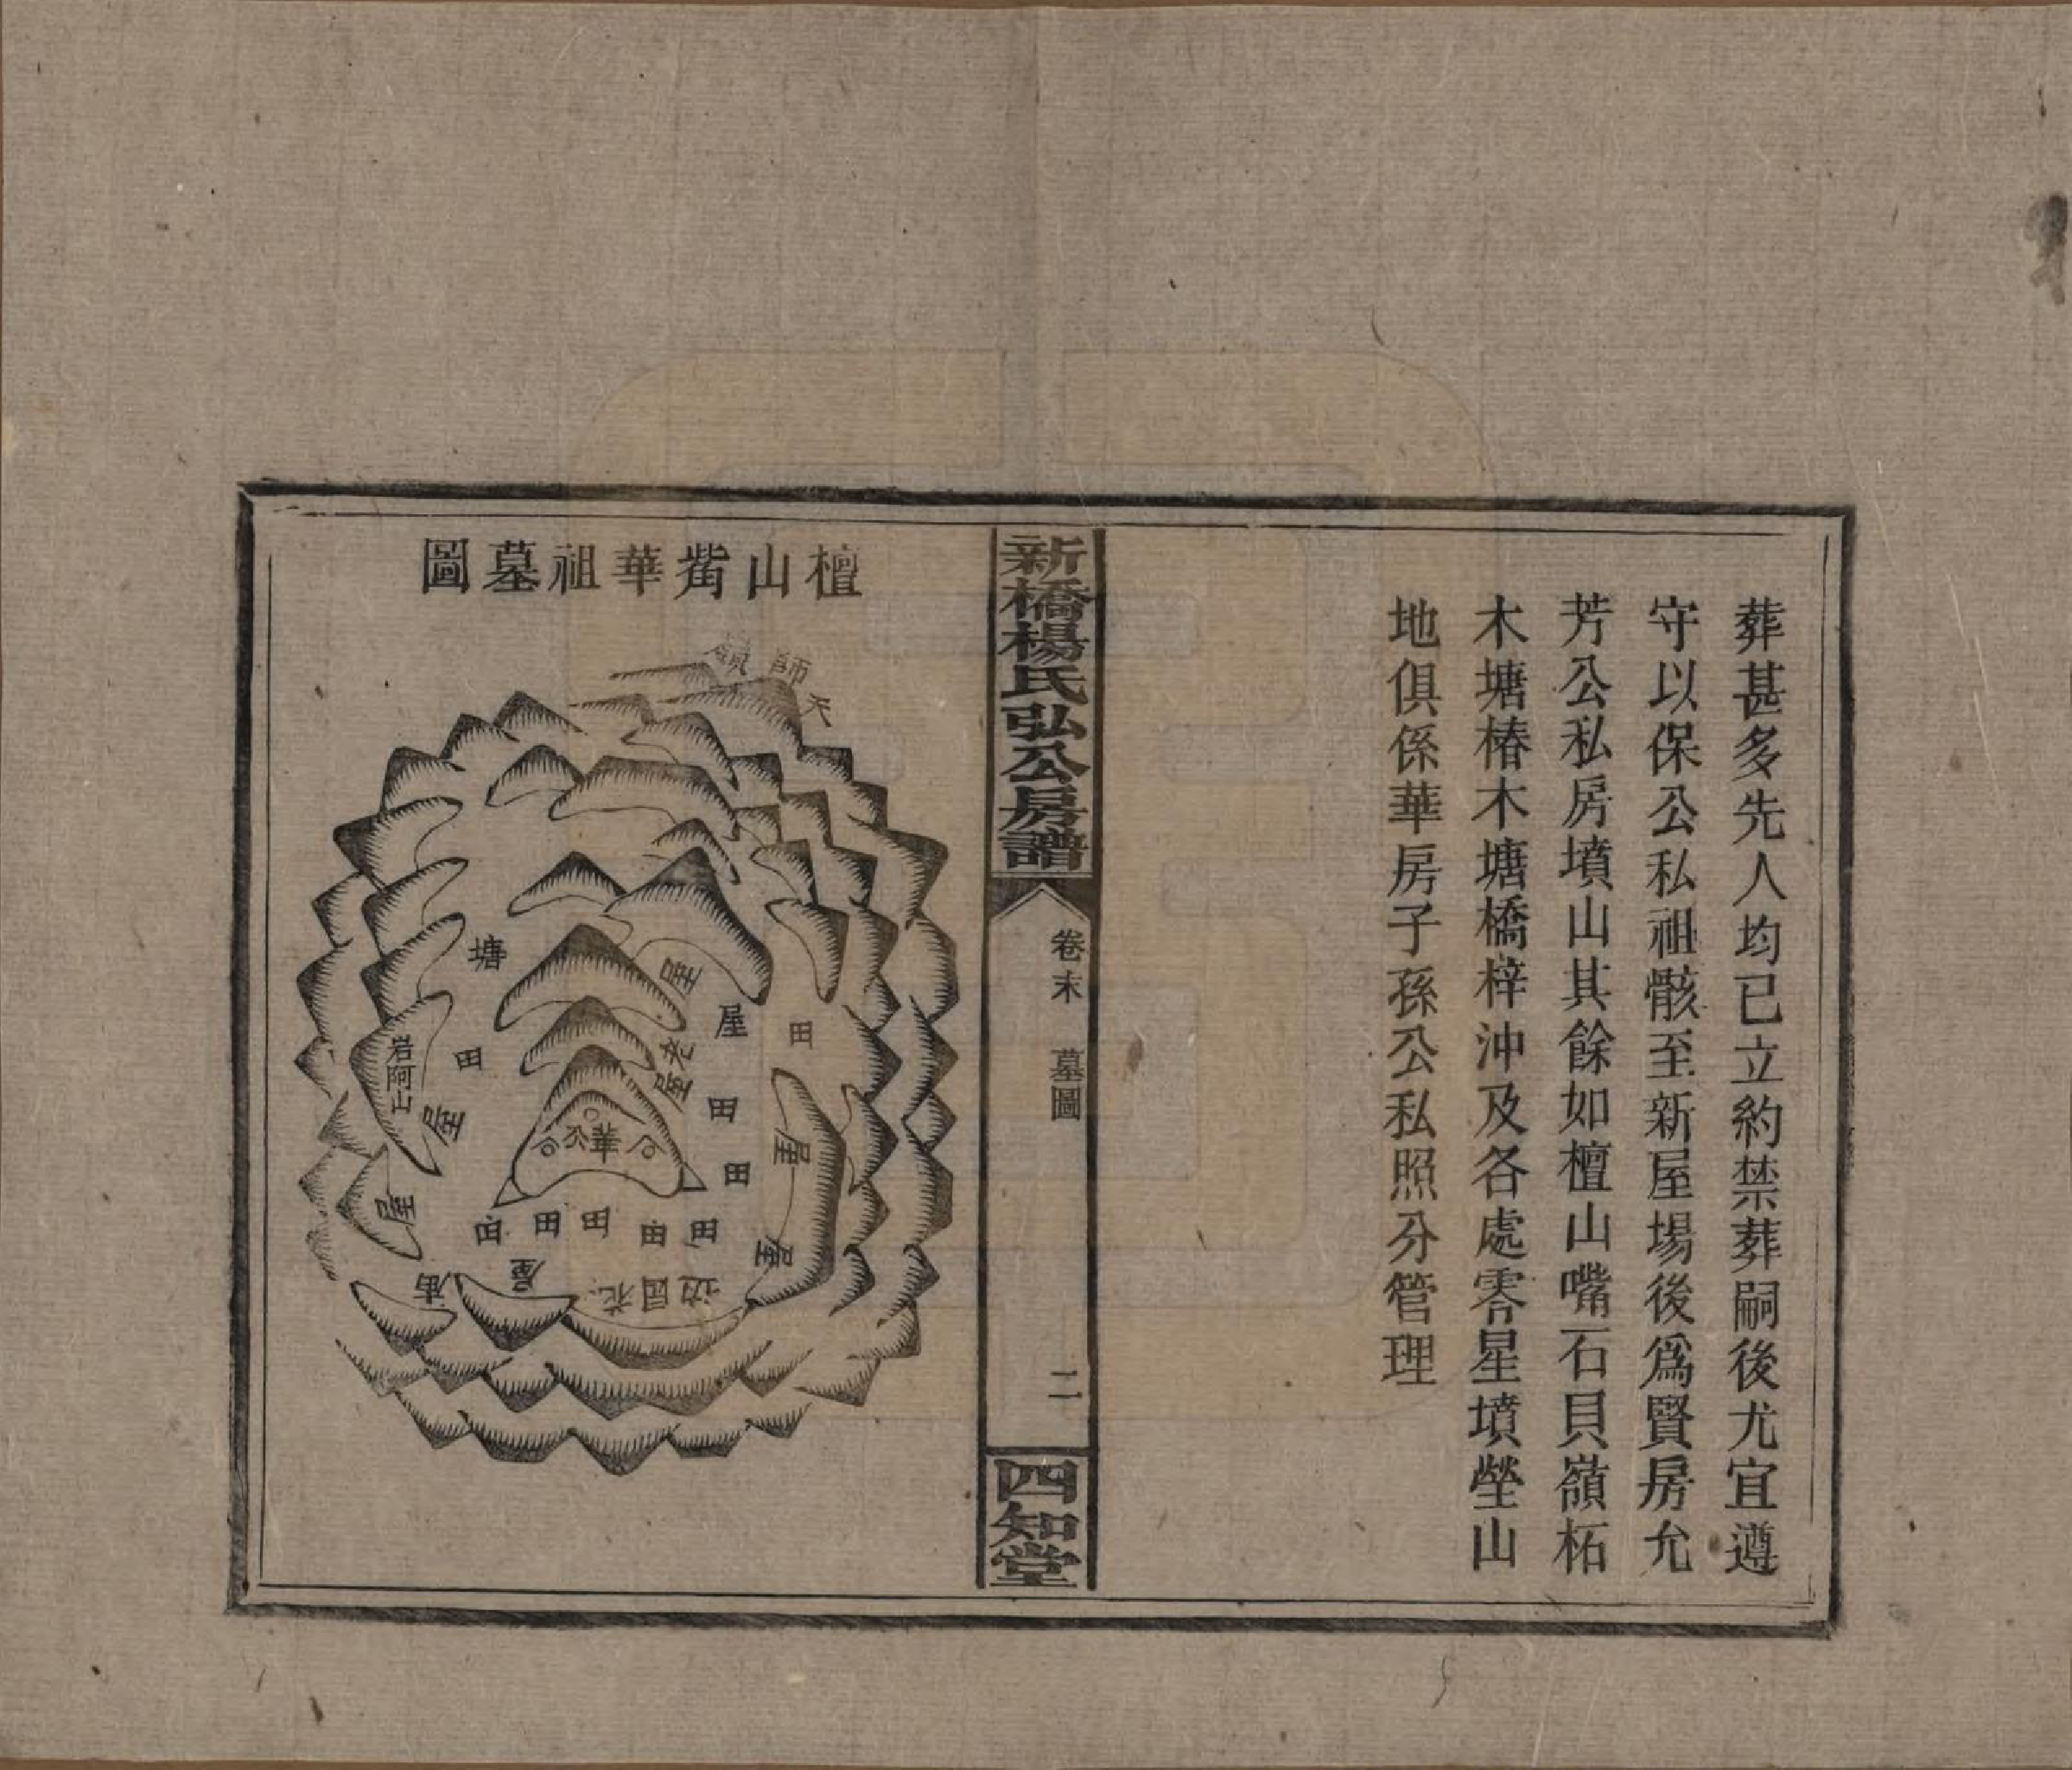 葬甚多先人均已立約禁葬嗣後尤宜遵
守以保公私祖骸至新屋場後爲賢房允
芳公私房墳山其餘如檀山嘴石貝嶺柘
木塘椿木塘橋梓沖及各處零星墳塋山
地俱係華房子孫公私照分管理
新橋楊氏弘公房譜
卷末
墓圖
二
四知堂
檀山觜華祖墓圖
天師嶺
塘
屋
屋
田
老屋
田
田
田
屋
屋
華公
岩阿山
屋
屋
田
田
田
田
田
屋
庙